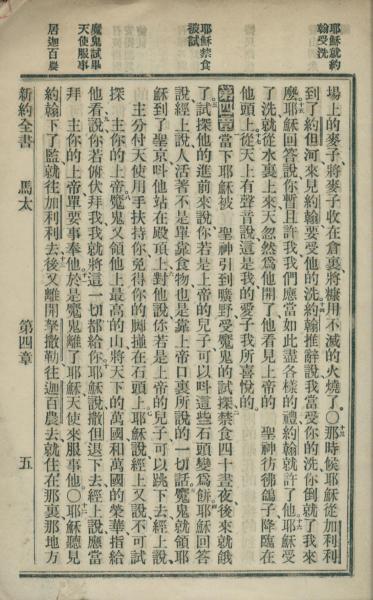 耶穌就約
翰受洗
耶穌禁食
被試
魔鬼試畢
天使服事
居迦百農
場上的麥子、將麥子收在倉裏、將糠用不滅的火燒了。○那時候耶穌從加利利
到了約但河、來見約翰、要受他的洗、約翰推辭說、我當受你的洗、你倒就了我來
麼、耶穌回答說、你暫且許我、我們應當如此盡各樣的禮、約翰就許了他、耶穌受
了洗、就從水裏上來、天忽然爲他開了、他看見上帝的 聖神彷彿鴿子降臨在
他頭上、從天上有聲音說、這是我的愛子、我所喜悅的、
第四章 當下耶穌被 聖神引到曠野、受魔鬼的試探、禁食四十晝夜、後來就餓
了、試探他的進前來說、你若是上帝的兒子、可以呌這些石頭變爲餅、耶穌回答
說、經上說、人活著不是單靠食物、也是靠上帝口裏所說的一切話、魔鬼就領耶
穌到了聖京、呌他站在殿頂上、對他說、你若是上帝的兒子、可以跳下去、經上說、
主分付天使用手扶持你、免得你的腳撞在石頭上、耶穌說、經上又說、不可試
探 主你的上帝、魔鬼又領他上最高的山、將天下的萬國和萬國的榮華、指給
他看、說、你若俯伏拜我、我就將這一切都給你、耶穌說、撒但退下去、經上說、應當
拜 主你的上帝、單要事奉他、於是魔鬼離了耶穌、天使來服事他。○耶穌聽見
約翰下了監、就往加利利去、後又離開拏撒勒、往迦百農去、就住在那裏、那地方
新約全書 馬太 第四章 五